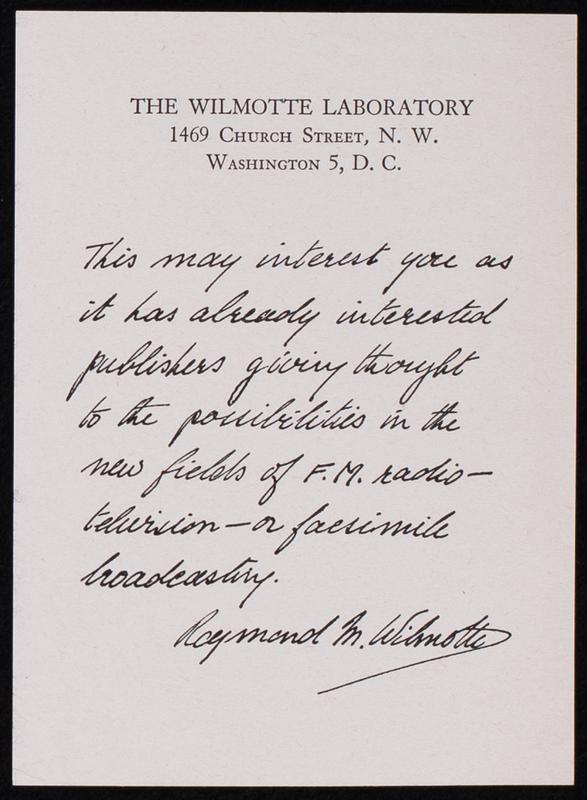 THE WILMOTTE LABORATORY
1469 CHURCH STREET, N. W.
WASHINGTON 5, D. C.
This may interest you as
it has already interested
publishers giving thought
to the possibilities in the
new fields of F.M. radio—
television — or facsimile
broadcasting.
Raymond M. Wilmotte